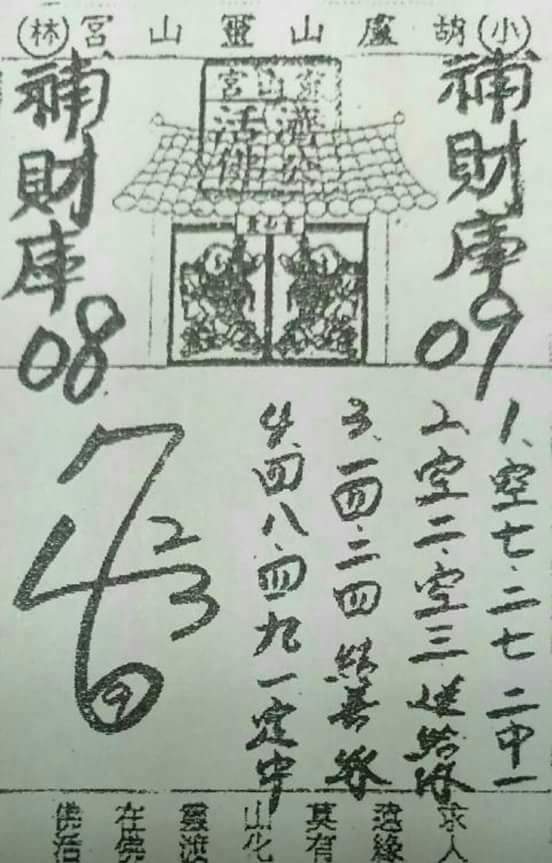 (小)胡盧山靈山宮(林)
靈山宮
濟公
活佛
補財庫
09
補財庫
08
1、空七、二七 二中一
2、空二、空三 送給你
3、一四、二四 結善
4、四八、四九 一定中
7
2
4
3
6
9
佛在靈山莫遠求
活佛渡化有緣人